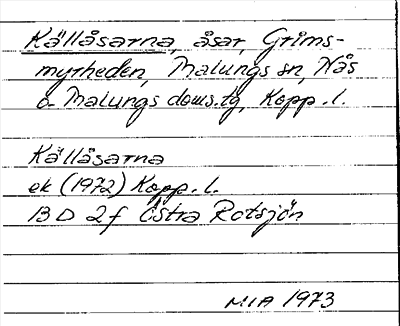 Källåsarna, åsar, Grims-
myrheden, Malungs sn, Nås
o. Malungs doms.tg, Kopp. l.
Källåsarna
ek (1972) Kopp. l.
13 D 2f Östra Rotsjön
MIA 1973